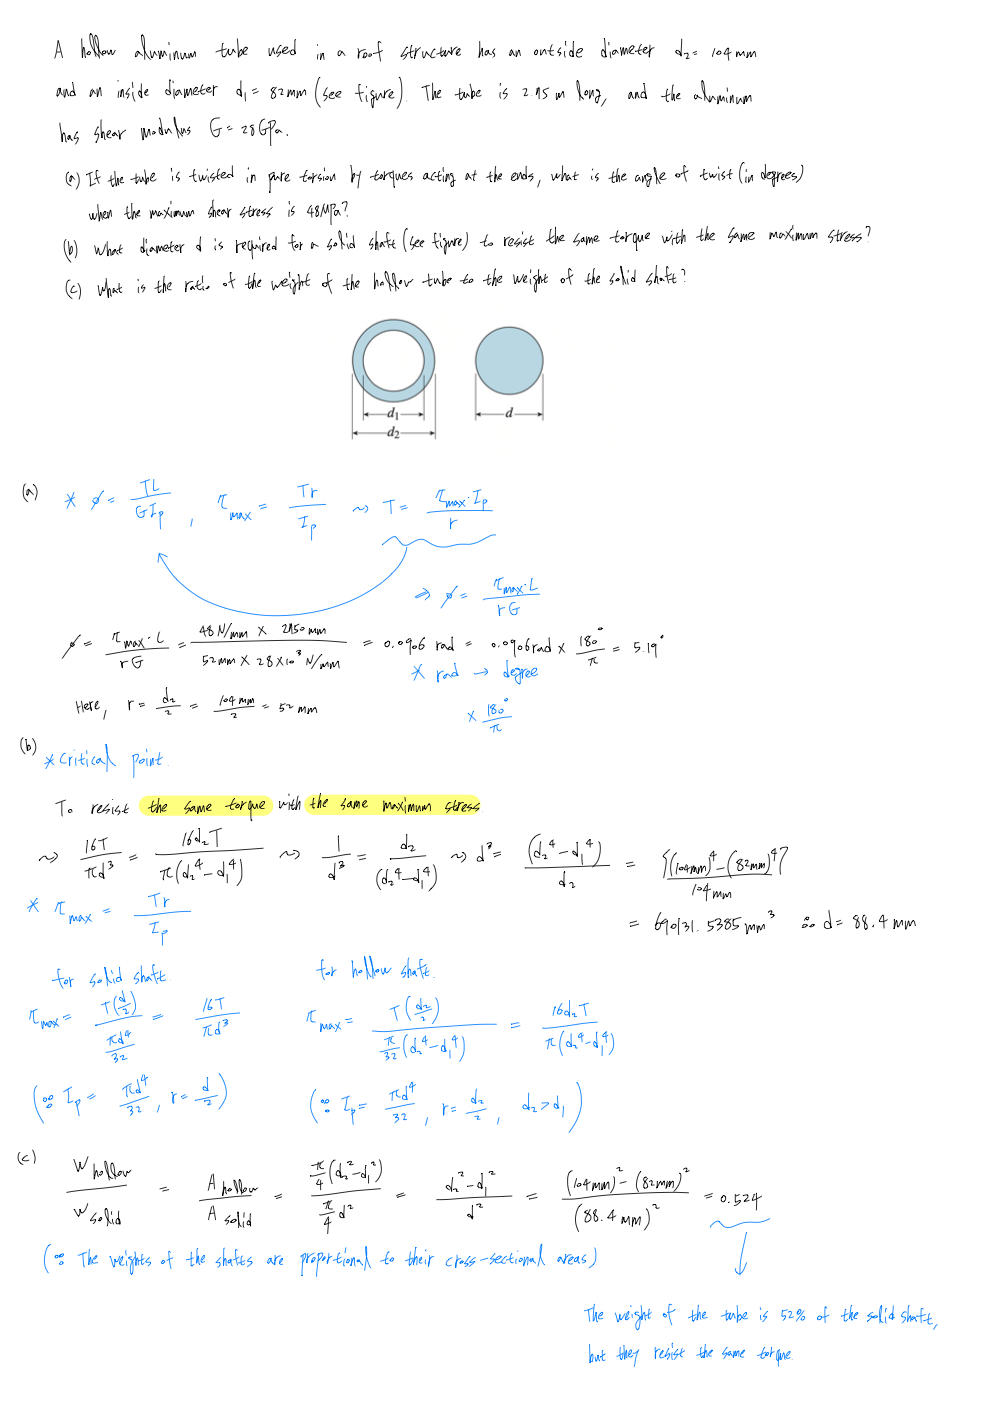 A hollow aluminum tube used in a roof structure has an outside diameter d₂ = 104 mm
and an inside diameter d₁ = 82mm (see figure). The tube is 2.75 m long, and the aluminum
has shear modulus G = 28GPa.
(a) If the tube is twisted in pure torsion by torques acting at the ends, what is the angle of twist (in degrees)
when the maximum shear stress is 48MPa?
(b) What diameter d is required for a solid shaft (see figure) to resist the same torque with the same maximum stress?
(c) What is the ratio of the weight of the hollow tube to the weight of the solid shaft?
d₁ d
d₂
(a) * ϕ = TL / GI_p , τ_max = Tr / I_p ⇝ T = τ_max·I_p / r
⇒ ϕ = τ_max·L / rG
ϕ = τ_max·L / rG = 48 N/mm × 2750mm / 52mm × 28×10³ N/mm = 0.0906 rad = 0.0906rad × 180° / π = 5.19°
* rad → degree
Here, r = d₂ / 2 = 104mm / 2 = 52 mm
× 180° / π
(b) * Critical point.
To resist the same torque with the same maximum stress
⇝ 16T / πd³ = 16d₂T / π(d₂⁴-d₁⁴) ⇝ 1 / d³ = d₂ / (d₂⁴-d₁⁴) ⇝ d³ = (d₂⁴-d₁⁴) / d₂ = {(104mm)⁴-(82mm)⁴} / 104mm
* τ_max = Tr / I_p
= 690131.5385 mm³ ∴ d = 88.4 mm
for solid shaft for hollow shaft.
τ_max = T(d/2) / (πd⁴/32) = 16T / πd³ τ_max = T(d₂/2) / (π/32 (d₂⁴-d₁⁴)) = 16d₂T / π(d₂⁴-d₁⁴)
(∵ I_p = πd⁴ / 32 , r = d / 2) (∵ I_p = πd⁴ / 32 , r = d₂ / 2 , d₂>d₁)
(c) W hollow / W solid = A hollow / A solid = π/4 (d₂²-d₁²) / π/4 d² = d₂²-d₁² / d² = (104mm)²-(82mm)² / (88.4mm)² = 0.524
(∵ The weights of the shafts are proportional to their cross-sectional areas)
The weight of the tube is 52% of the solid shaft,
but they resist the same torque.